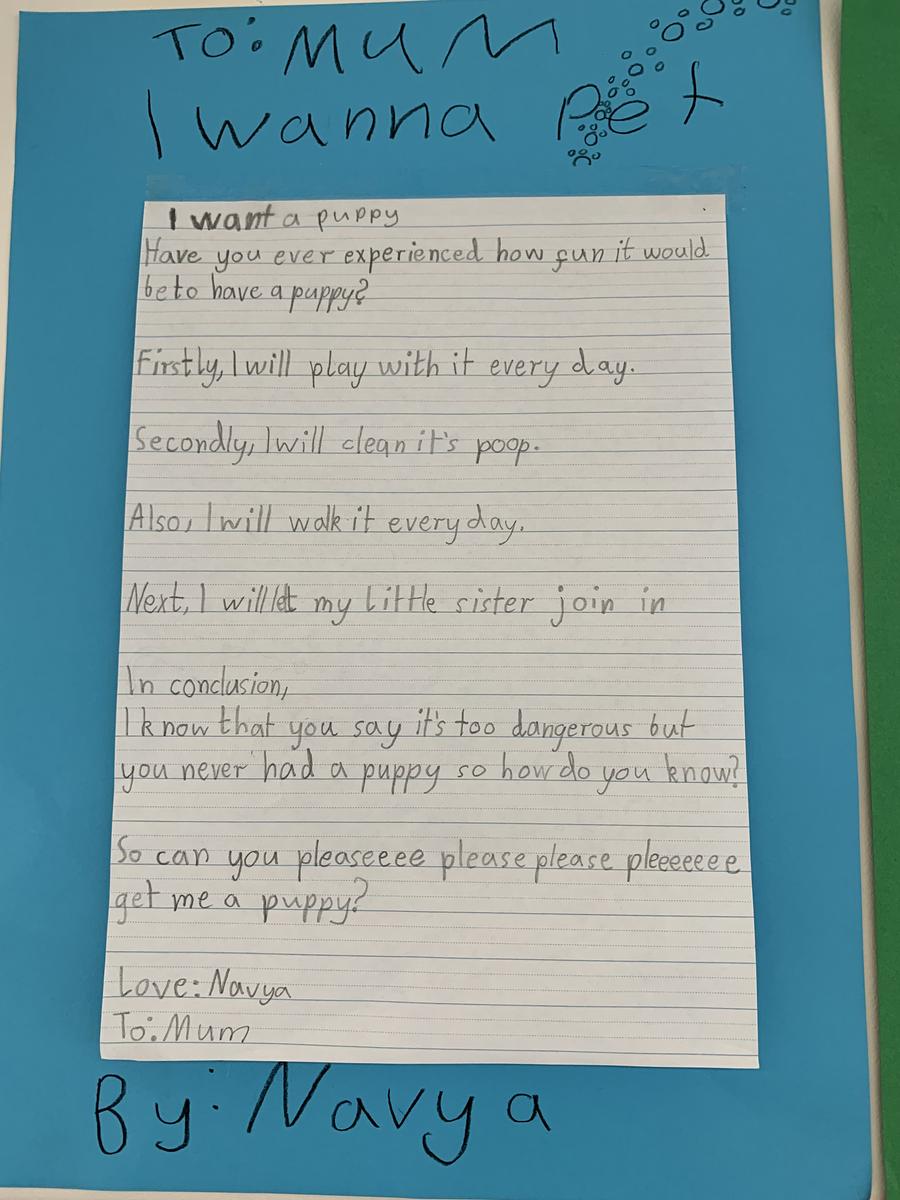 To: MUM
I wanna Pet
I want a puppy
Have you ever experienced how fun it would
be to have a puppy?
Firstly, I will play with it every day.
Secondly, I will clean it's poop.
Also, I will walk it every day.
Next, I will let my little sister join in
In conclusion,
I know that you say it's too dangerous but
you never had a puppy so how do you know?
So can you pleaseeee please please pleeeeeee
get me a puppy?
Love: Navya
To: Mum
By: Navya